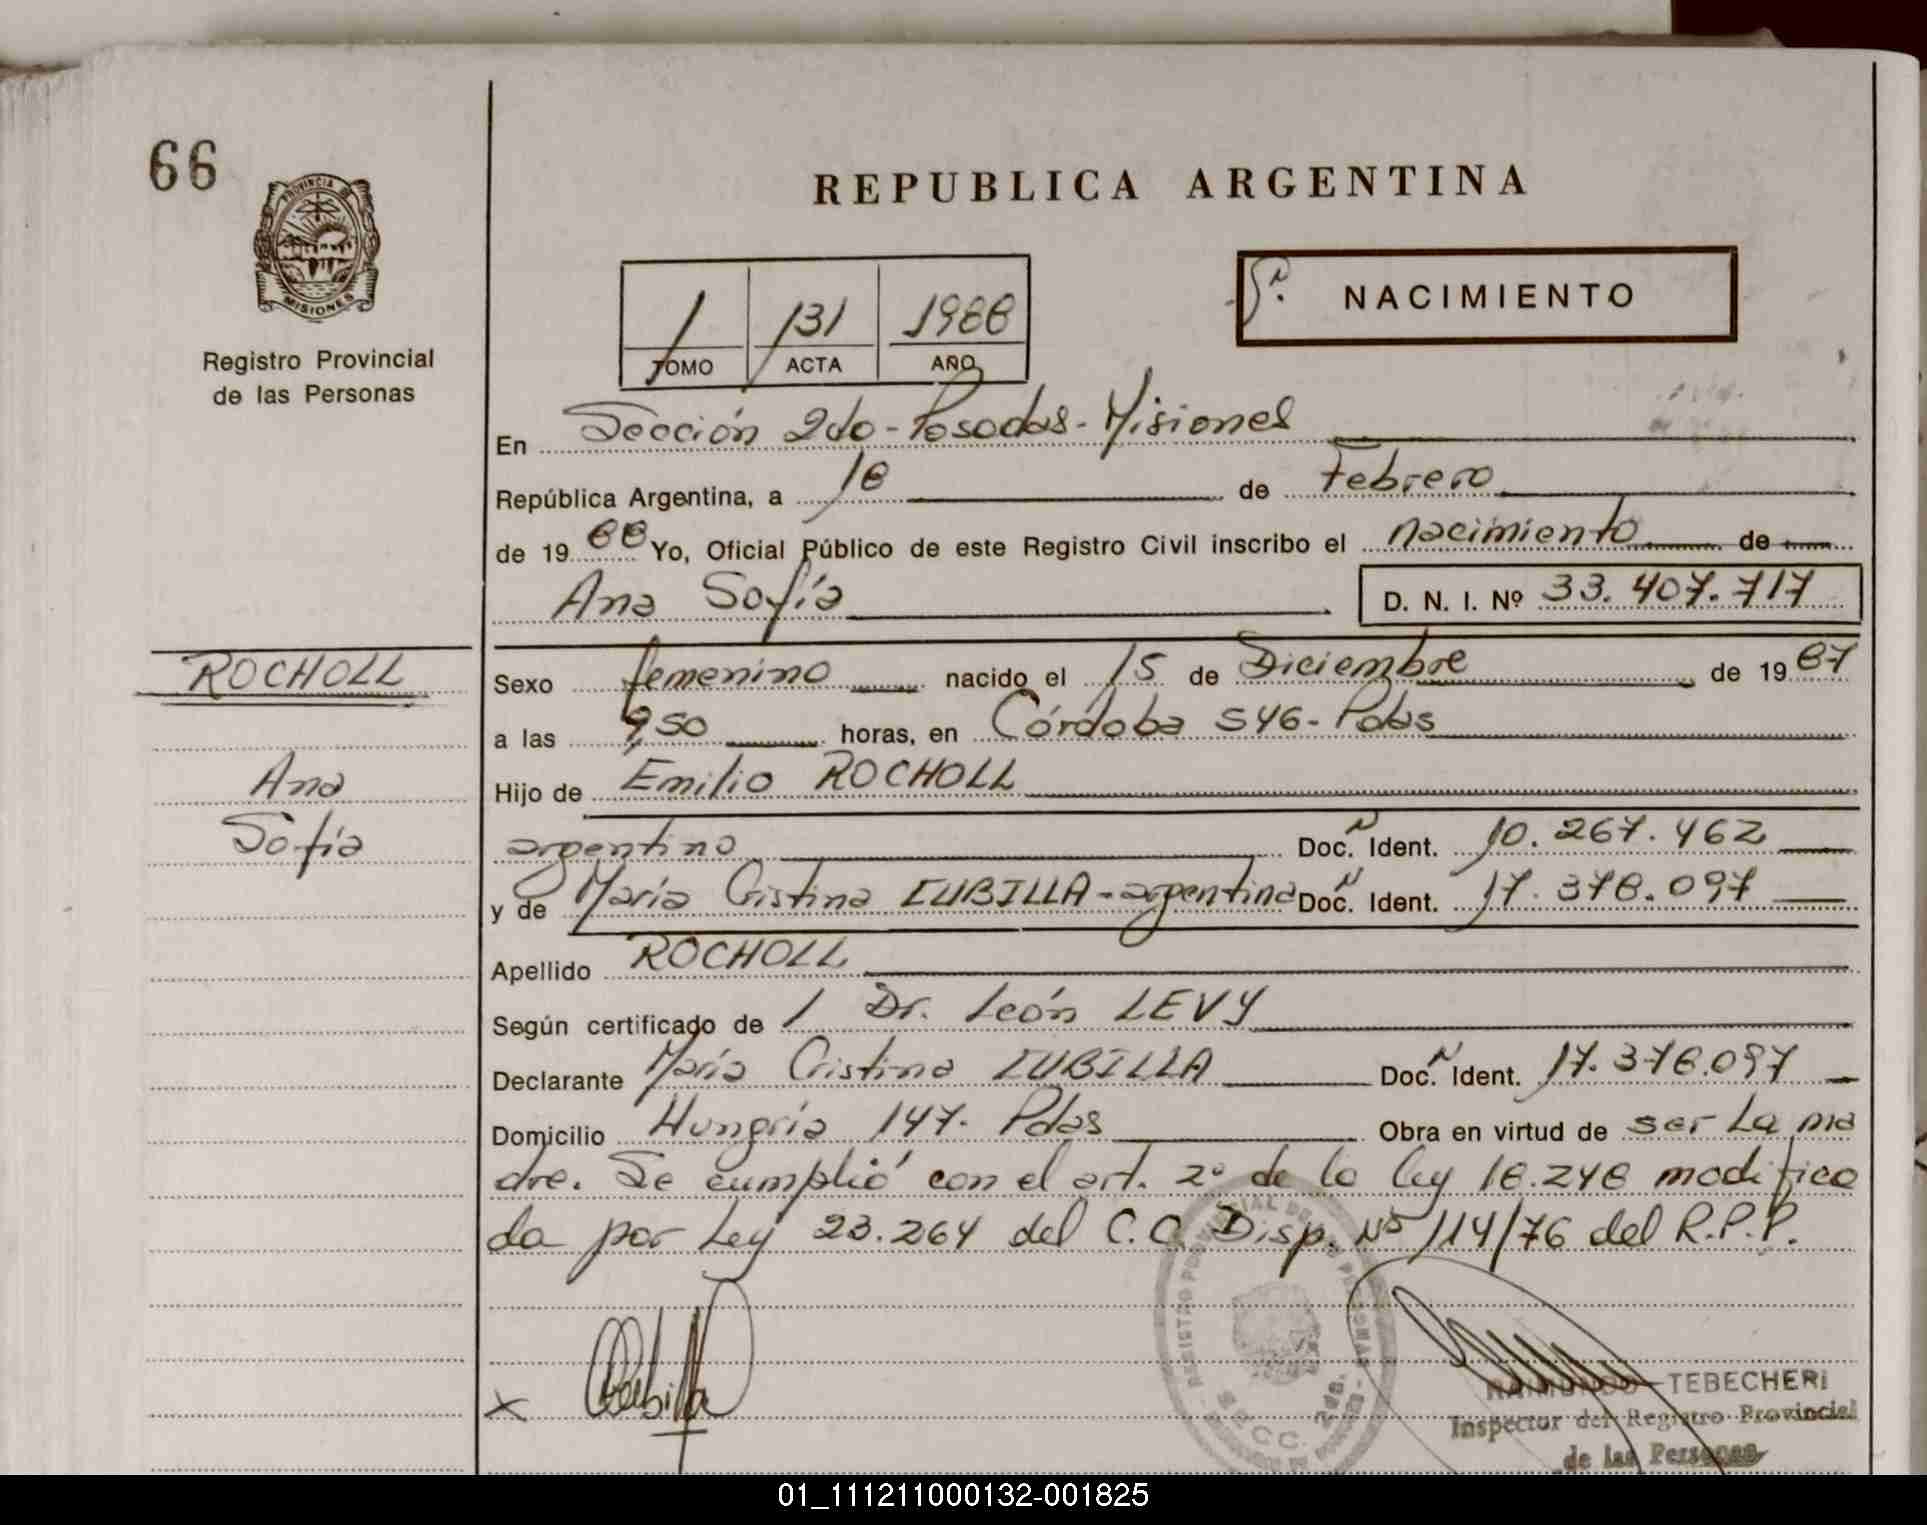 66
PROVINCIA DE
MISIONES
Registro Provincial
de las Personas
REPUBLICA ARGENTINA
1 131 1988
TOMO ACTA AÑO
NACIMIENTO
En Sección 2do - Posadas - Misiones
República Argentina, a 18 de Febrero
de 19 88 Yo, Oficial Público de este Registro Civil inscribo el nacimiento de
Ana Sofía D. N. I. Nº 33.407.717
ROCHOLL
Ana
Sofía
Sexo femenino nacido el 15 de Diciembre de 19 87
a las 9,50 horas, en Córdoba 546 - Pdas
Hijo de Emilio ROCHOLL
argentino Doc. Ident. 10.267.462
y de María Cristina CUBILLA - argentina Doc. Ident. 17.378.097
Apellido ROCHOLL
Según certificado de 1 Dr. León LEVY
Declarante María Cristina CUBILLA Doc. Ident. 17.378.097
Domicilio Hungría 147 - Pdas Obra en virtud de ser La ma
dre. Se cumplió con el art. 2º de la ley 18.248 modifica
da por Ley 23.264 del C.C. Disp. Nº 114/76 del R.P.P.
Cubilla
RAIMUNDO TEBECHERI
Inspector del Registro Provincial
de las Personas
SECC. 2da.
01_111211000132-001825